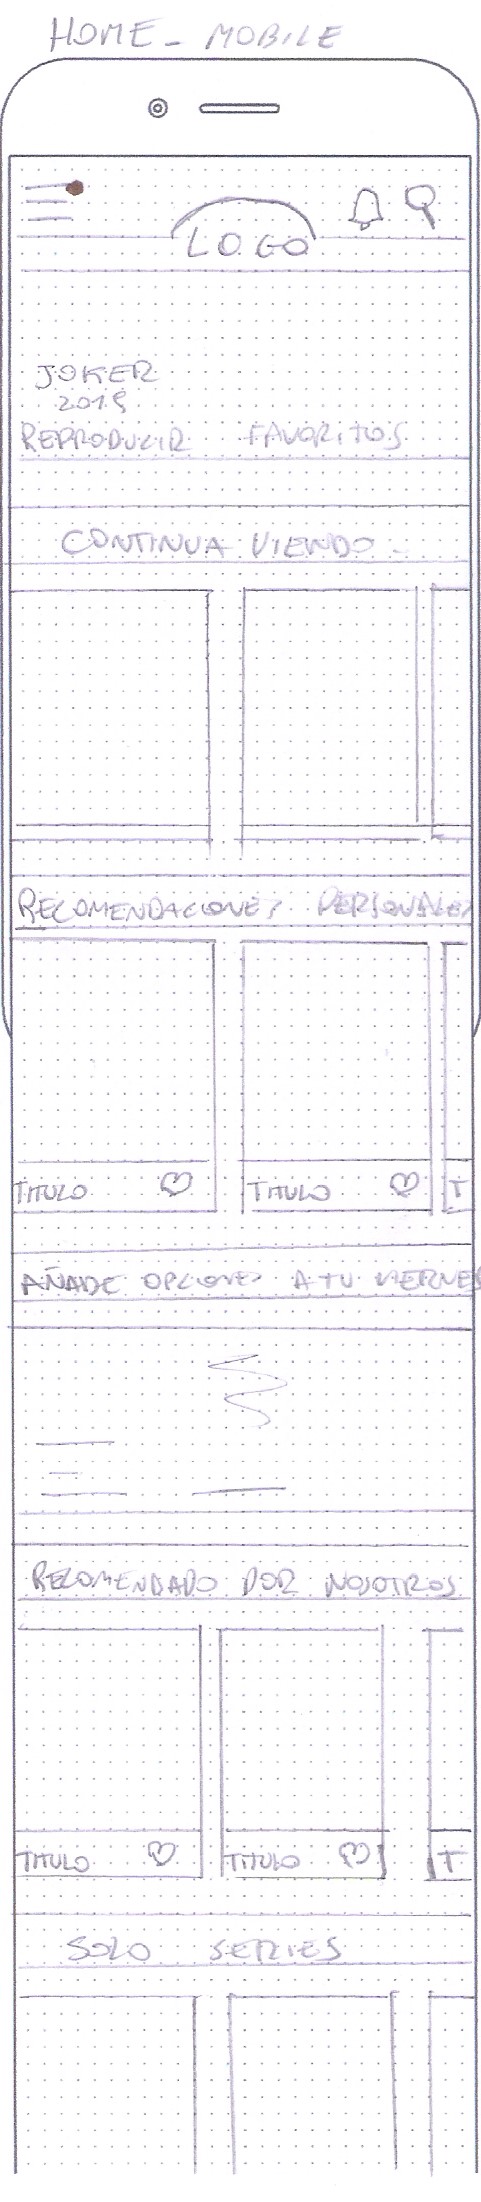 HOME - MOBILE
LOGO
JOKER
2019
REPRODUCIR FAVORITOS
CONTINUA VIENDO -
RECOMENDACIONES PERSONALES
TITULO TITULO T
AÑADE OPCIONES A TU VIERNES
RECOMENDADO POR NOSOTROS
TITULO TITULO T
SOLO SERIES